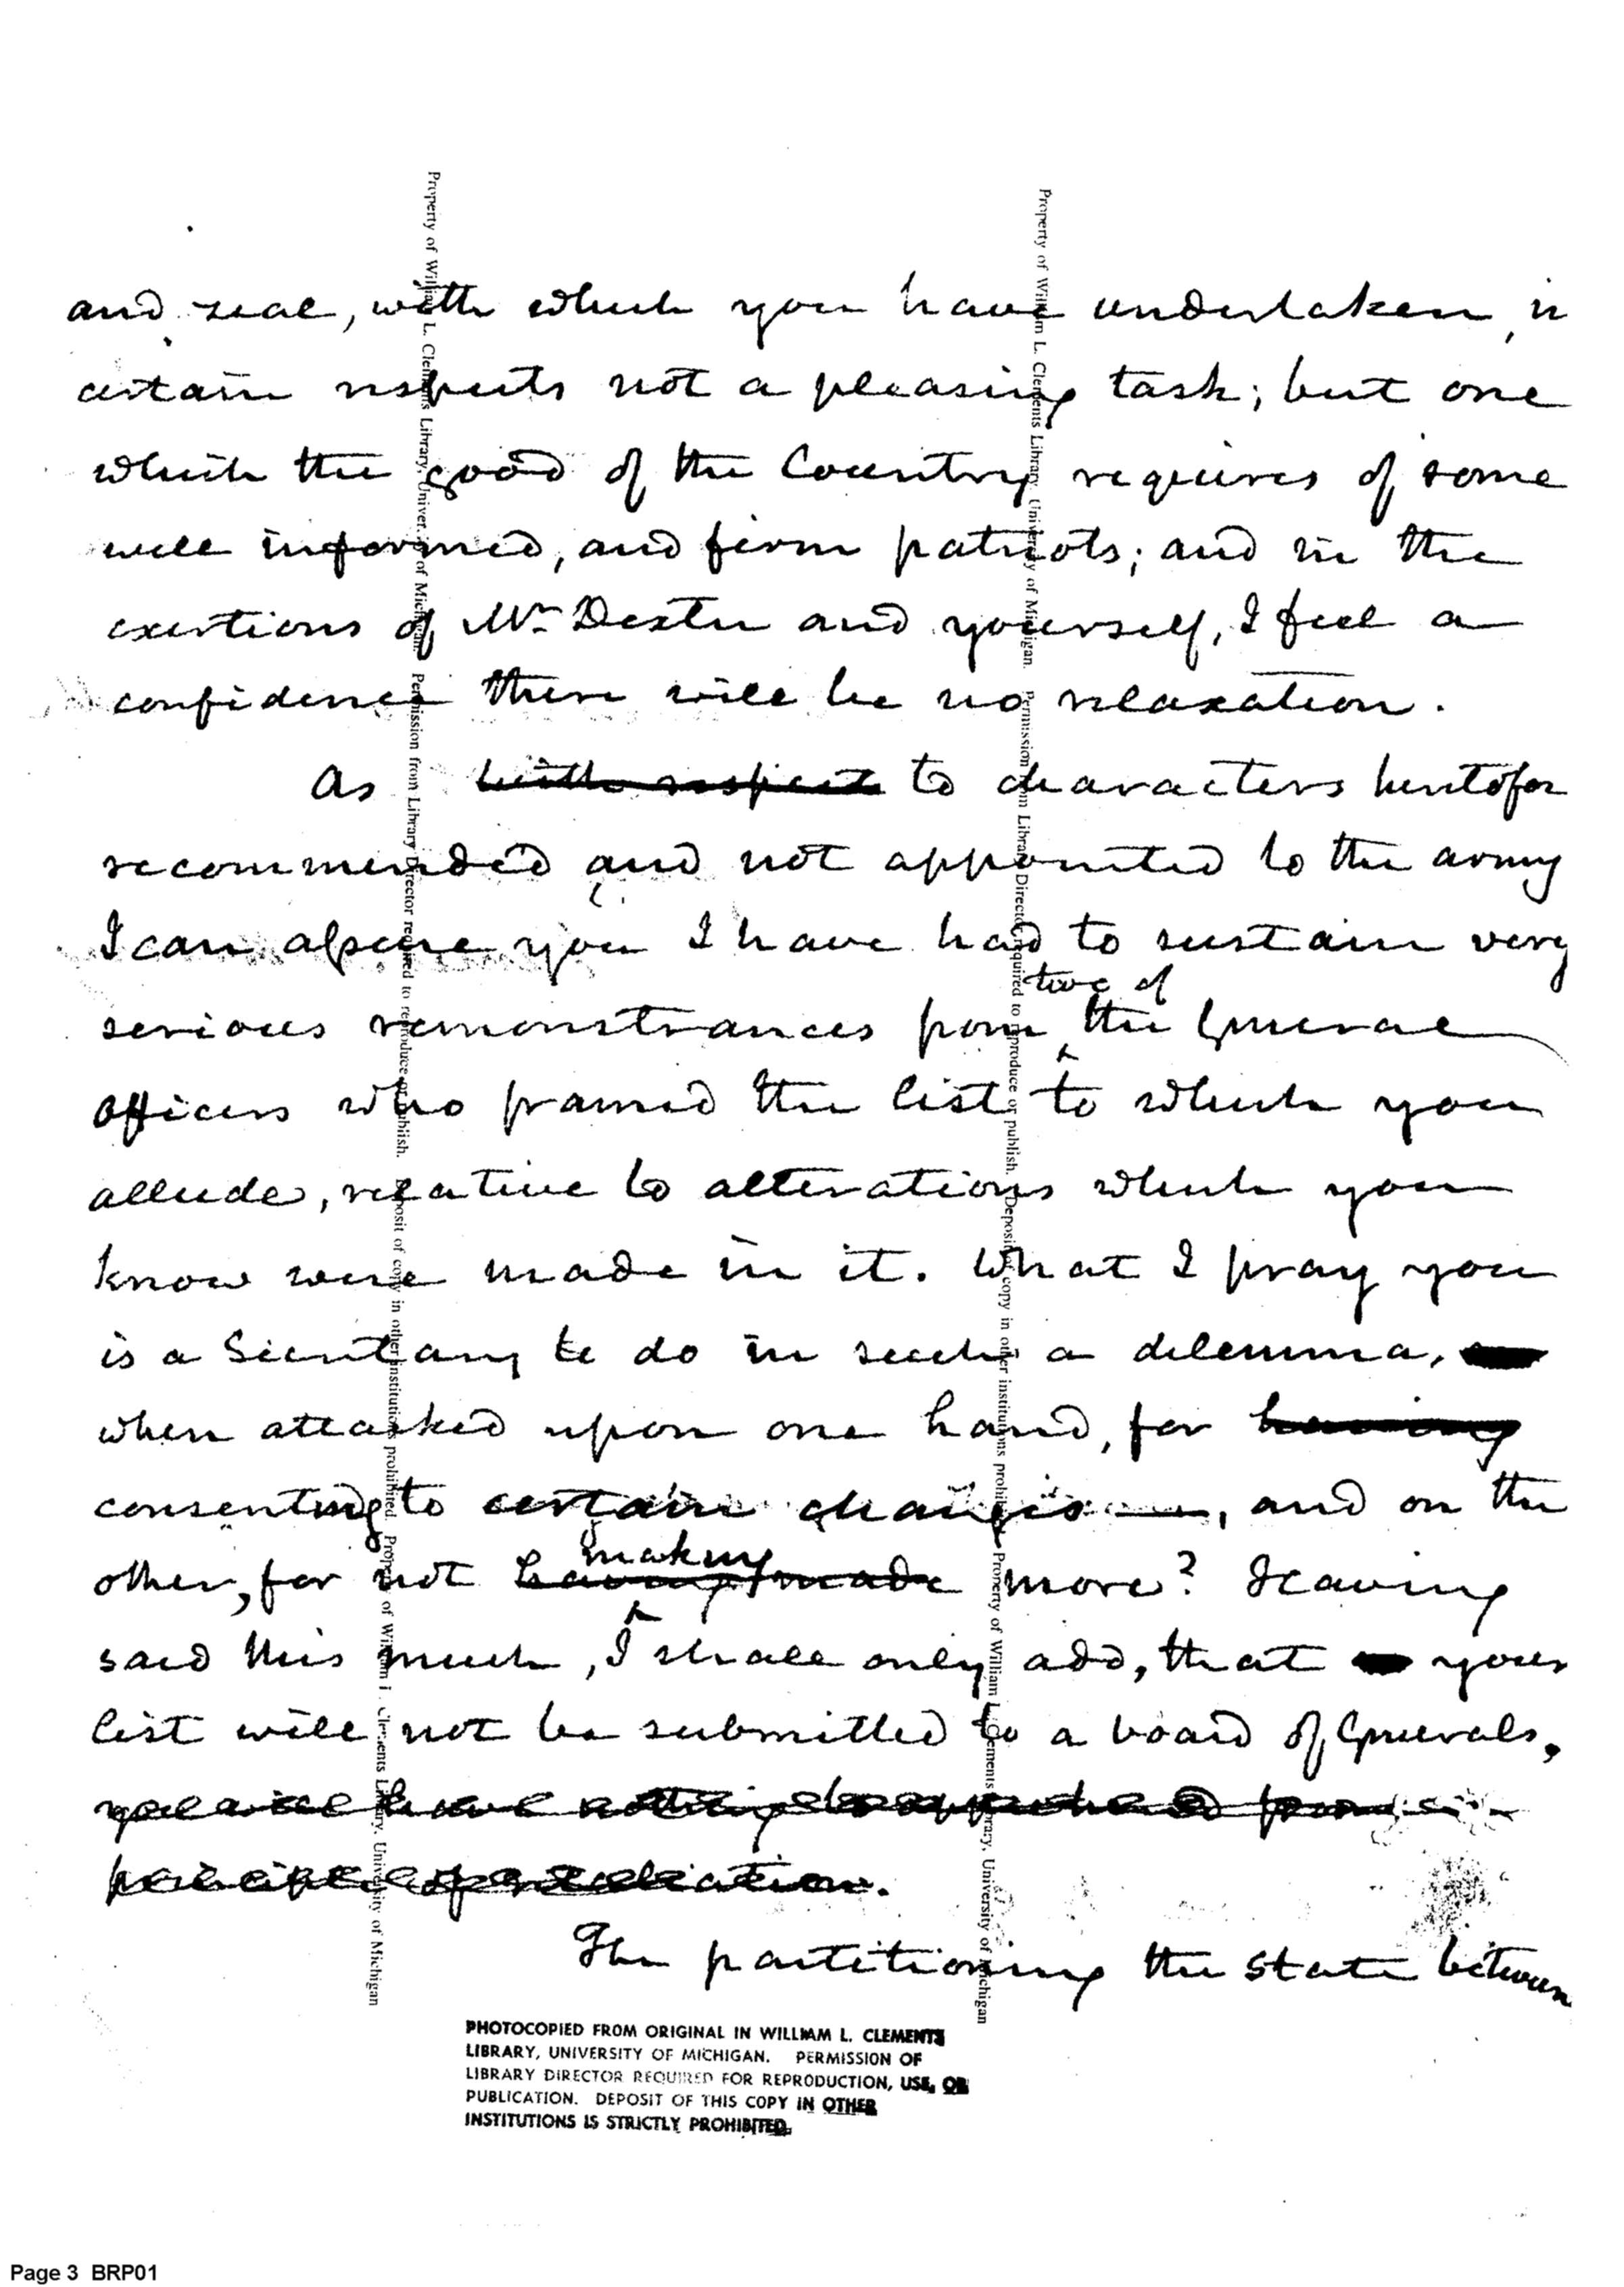 and zeal, with which you have undertaken, in
certain respects not a pleasing task; but one
which the good of the Country requires of some
well informed, and firm patriots; and in the
exertions of Mr Dexter and yourself, I feel a
confidence there will be no relaxation.
As with respect to characters heretofore
recommended and not appointed to the army
I can assure you I have had to sustain very
two of
serious remonstrances from the General
officers who framed the list to which you
allude, relative to alterations which you
know were made in it. What I pray you
is a Secretary to do in such a dilemma,
when attacked upon one hand, for having
consenting to certain changes, and on the
making
other, for not having made more? Having
said this much, I shall only add, that your
list will not be submitted to a board of Generals,
you will have nothing to apprehend from
principle of retaliation.
The partitioning the State between
PHOTOCOPIED FROM ORIGINAL IN WILLIAM L. CLEMENTS
LIBRARY, UNIVERSITY OF MICHIGAN. PERMISSION OF
LIBRARY DIRECTOR REQUIRED FOR REPRODUCTION, USE, OR
PUBLICATION. DEPOSIT OF THIS COPY IN OTHER
INSTITUTIONS IS STRICTLY PROHIBITED.
Property of William L. Clements Library, University of Michigan. Permission from Library Director required to reproduce or publish. Deposit of copy in other institutions prohibited. Property of William L. Clements Library, University of Michigan
Property of William L. Clements Library, University of Michigan. Permission from Library Director required to reproduce or publish. Deposit of copy in other institutions prohibited. Property of William L. Clements Library, University of Michigan
Page 3 BRP01